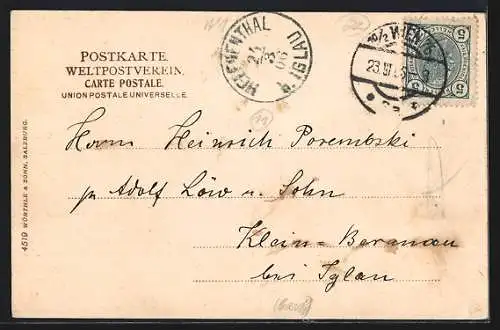 POSTKARTE.
WELTPOSTVEREIN.
CARTE POSTALE.
UNION POSTALE UNIVERSELLE.
HELENENTHAL
IGLAU
WIEN
5
5
Herrn Heinrich Porembski
pr Adolf Löw u. Sohn
Klein=Beranau
bei Iglau
4519 WÜRTHLE & SOHN, SALZBURG.